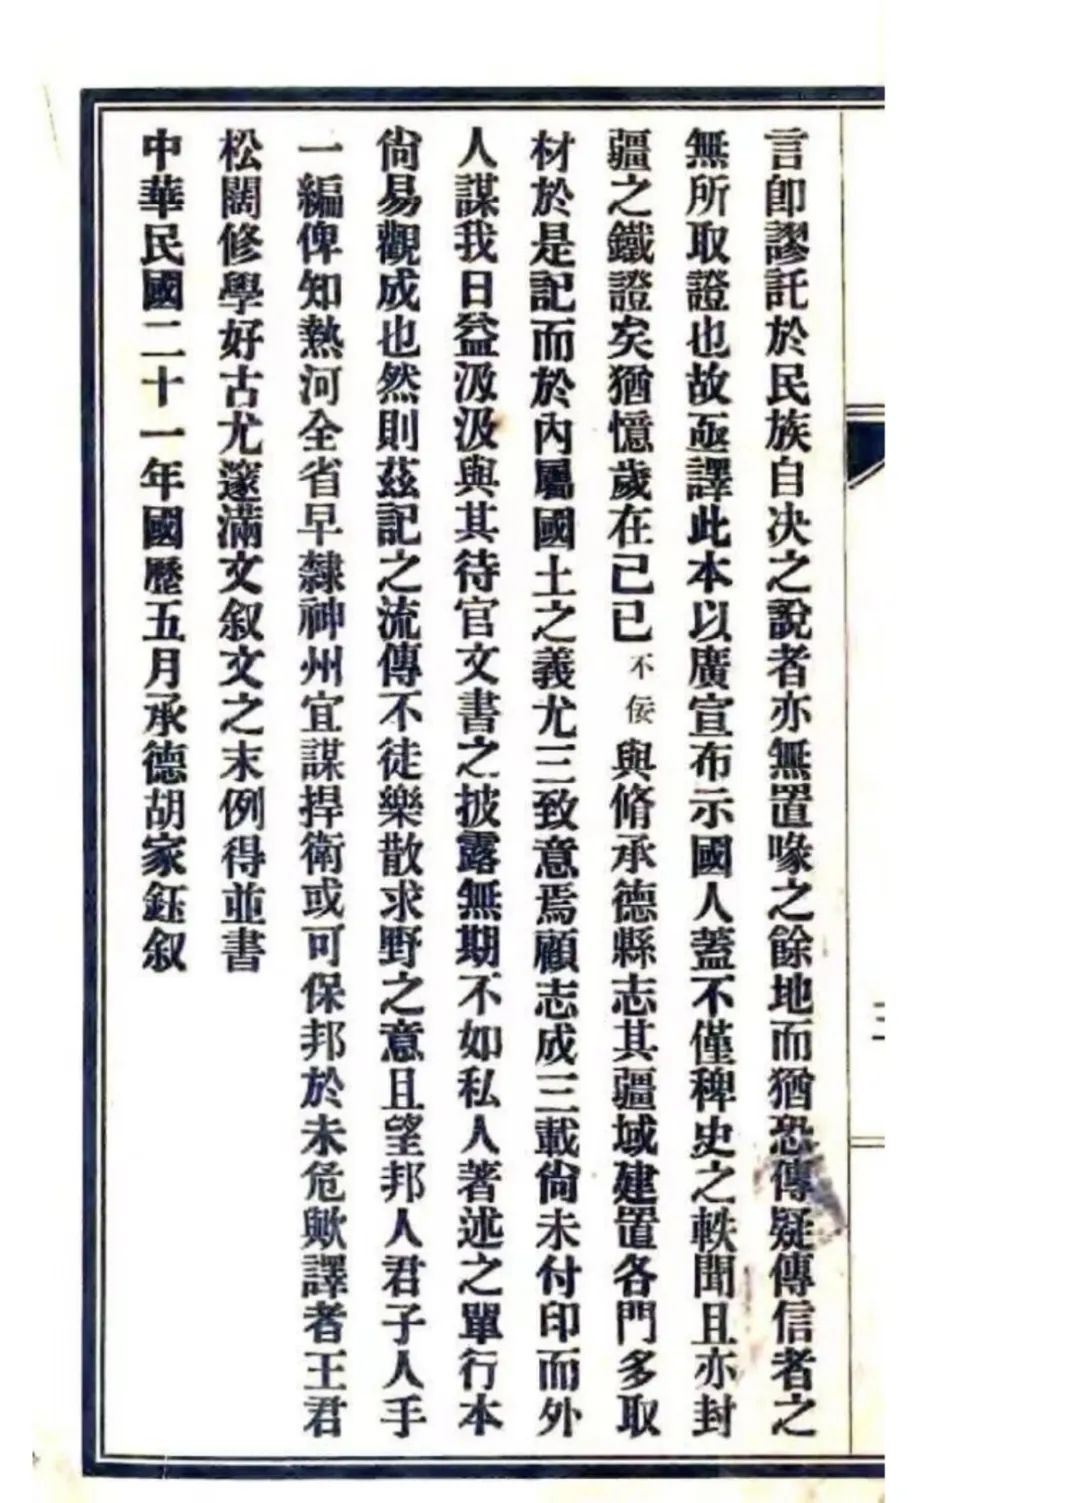 言卽謬託於民族自决之說者亦無置喙之餘地而猶恐傳疑傳信者之
無所取證也故亟譯此本以廣宣布示國人蓋不僅稗史之軼聞且亦封
疆之鐵證矣猶憶歲在己巳不佞與脩承德縣志其疆域建置各門多取
材於是記而於內屬國土之義尤三致意焉顧志成三載尙未付印而外
人謀我日益汲汲與其待官文書之披露無期不如私人著述之單行本
尙易觀成也然則茲記之流傳不徒樂散求野之意且望邦人君子人手
一編俾知熱河全省早隸神州宜謀捍衛或可保邦於未危歟譯者王君
松闊修學好古尤邃滿文叙文之末例得並書
中華民國二十一年國歷五月承德胡家鈺叙